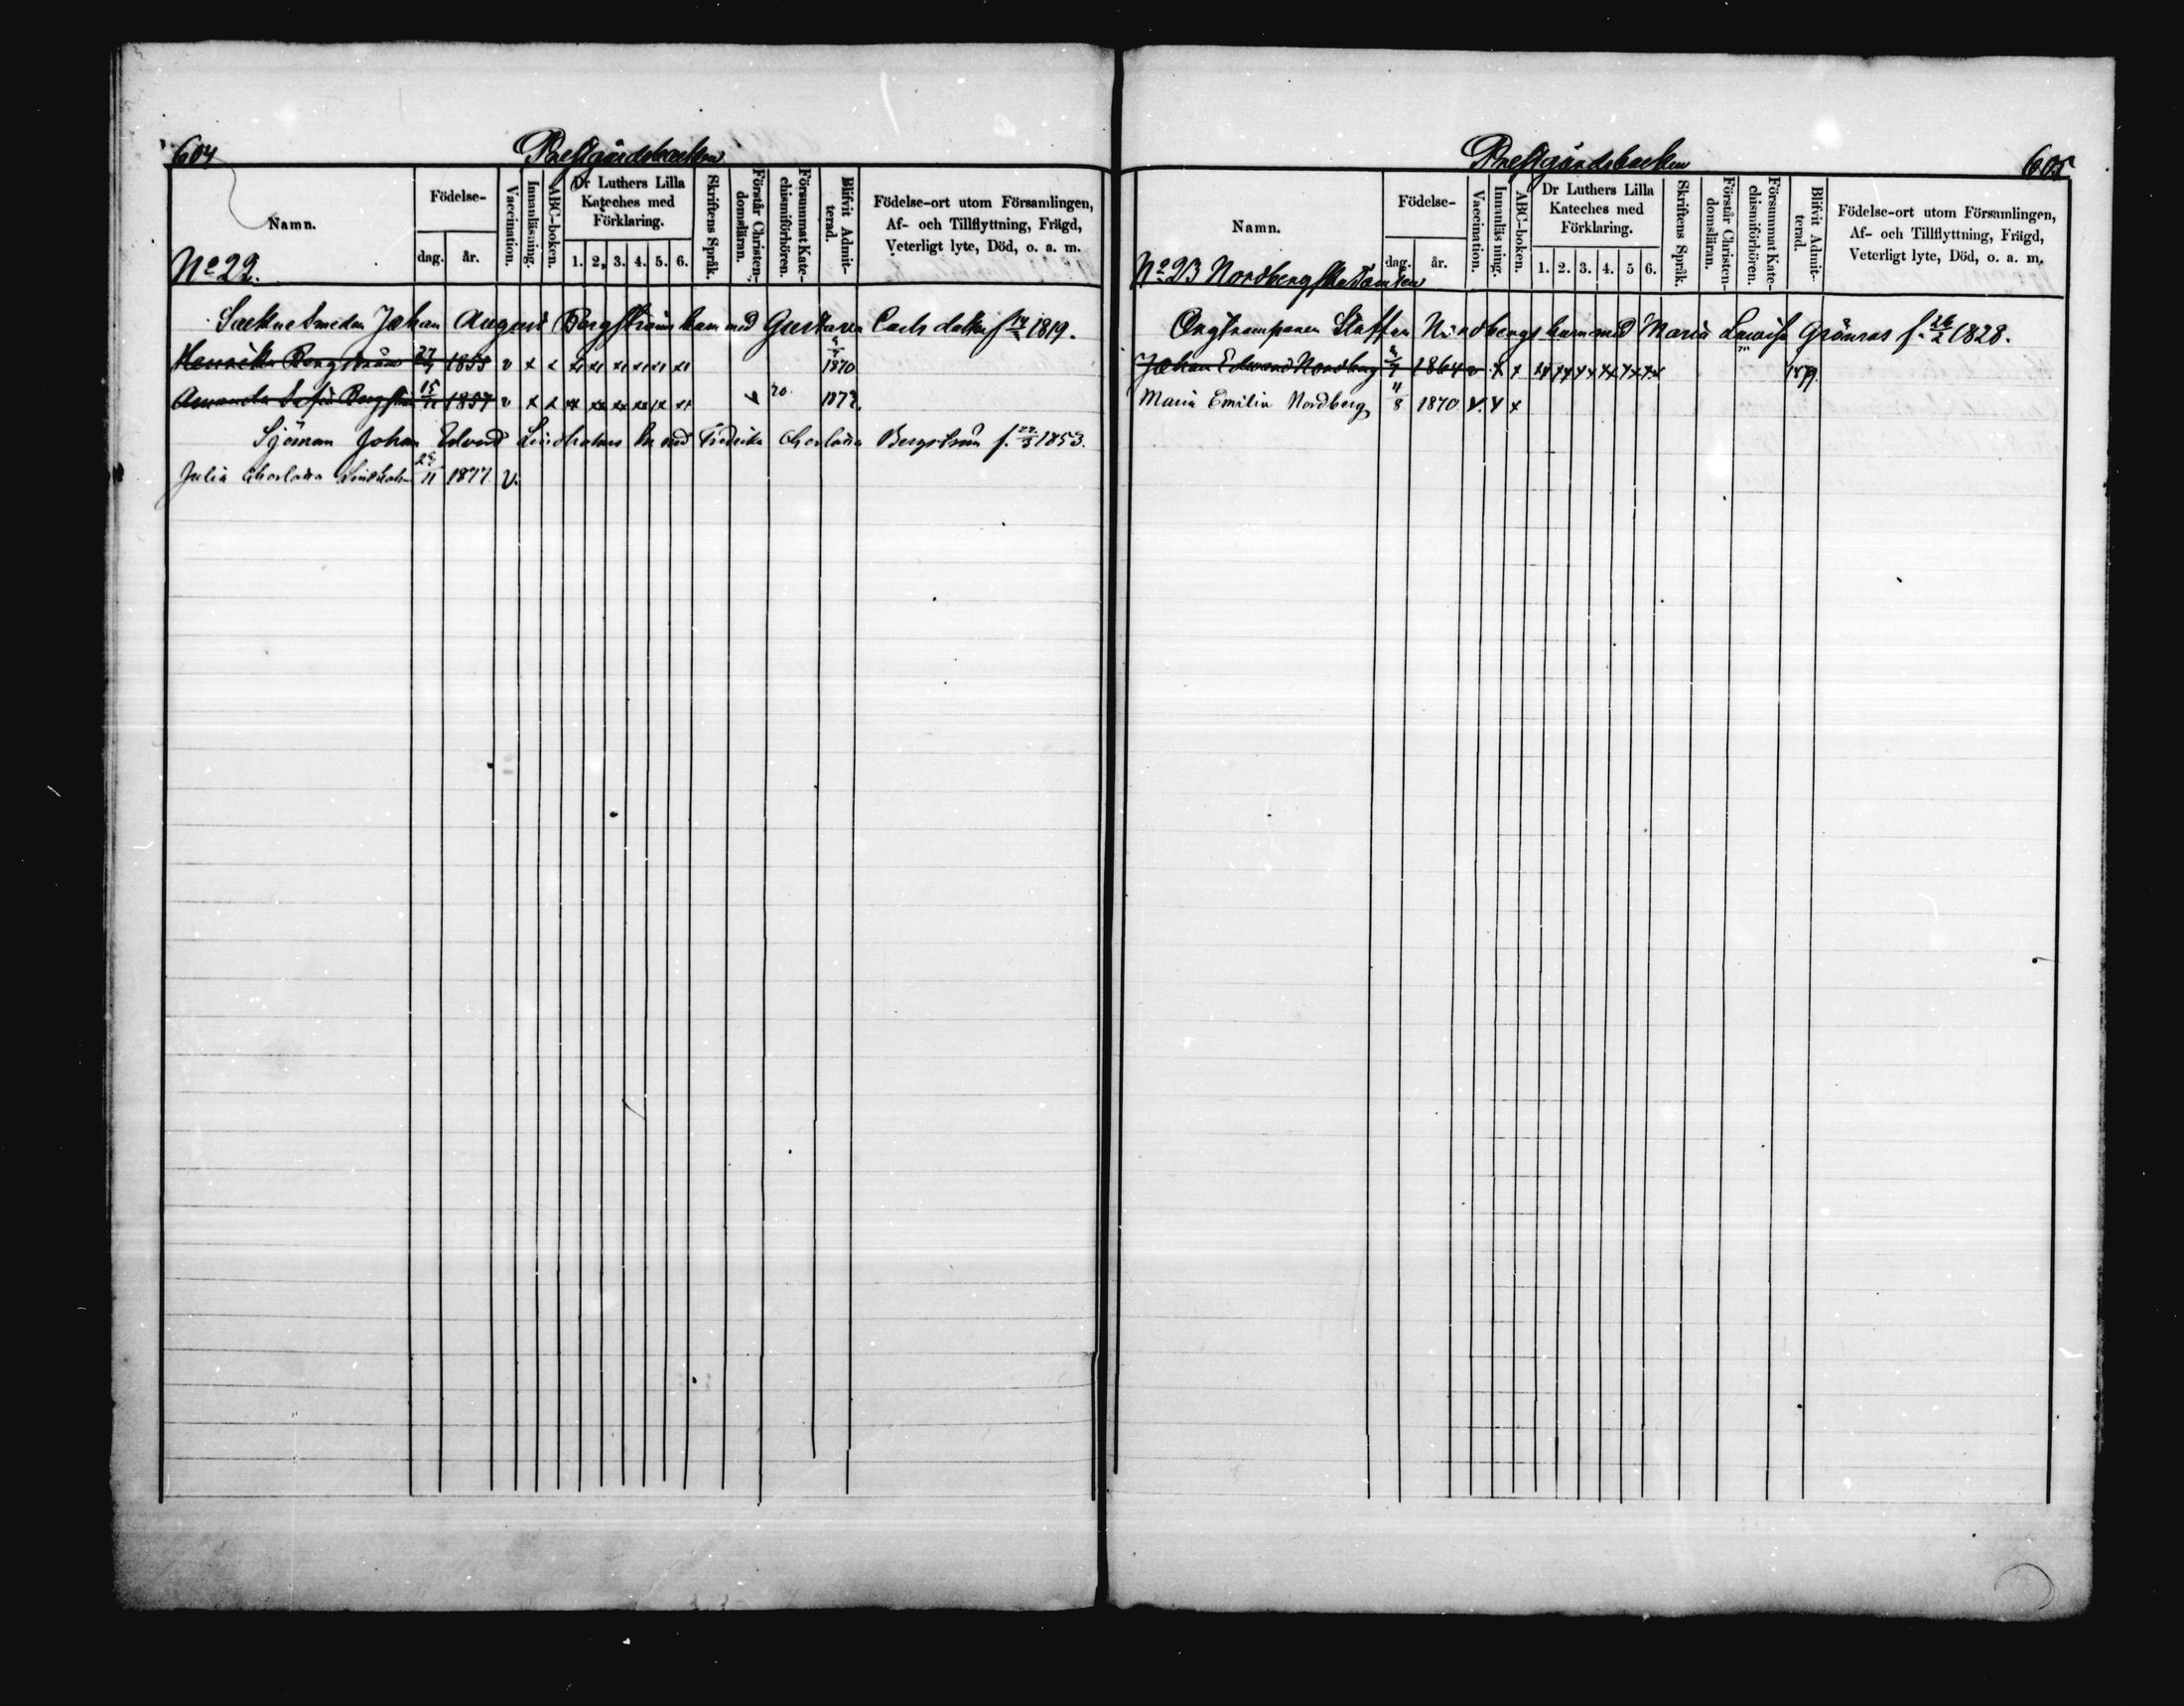 604
Prestgårdsbacken
Namn.
Födelse-
dag.
år.
Vaccination.
Innanläsning.
ABC-boken.
Dr Luthers Lilla
Kateches med
Förklaring.
1. 2. 3. 4. 5. 6.
Skriftens Språk.
Förstår Christen-
domsläran.
Försummat Kate-
chismiförhören.
Blifvit Admit-
terad.
Födelse-ort utom Församlingen,
Af- och Tillflyttning, Frägd,
Veterligt lyte, Död, o. a. m.
No 22.
Smeden Johan August Bergströms barn med Gustava Carls dotter f. 1819.
Henrika Bergström 1855 v 1870
Amanda Sofia Bergström 15/11 1857 v 70. 1873.
Sjöman Johan Edvard Lindholms bn med Fredrika Charlotta Bergström f. 1853.
Julia Charlotta Lindholm 1877. v.
Prestgårdsbacken
605
Namn.
Födelse-
dag.
år.
Vaccination.
Innanläsning.
ABC-boken.
Dr Luthers Lilla
Kateches med
Förklaring.
1. 2. 3. 4. 5 6.
Skriftens Språk.
Förstår Christen-
domsläran.
Försummat Kate-
chismiförhören.
Blifvit Admit-
terad.
Födelse-ort utom Församlingen,
Af- och Tillflyttning, Frägd,
Veterligt lyte, Död, o. a. m.
No 23 Nordbergska Tomten
Staffan Nordbergs barn med Maria Lovisa Grönros f. 26/2 1828.
Johan Edvard Nordberg 1864 v 1879.
Maria Emilia Nordberg 1870.